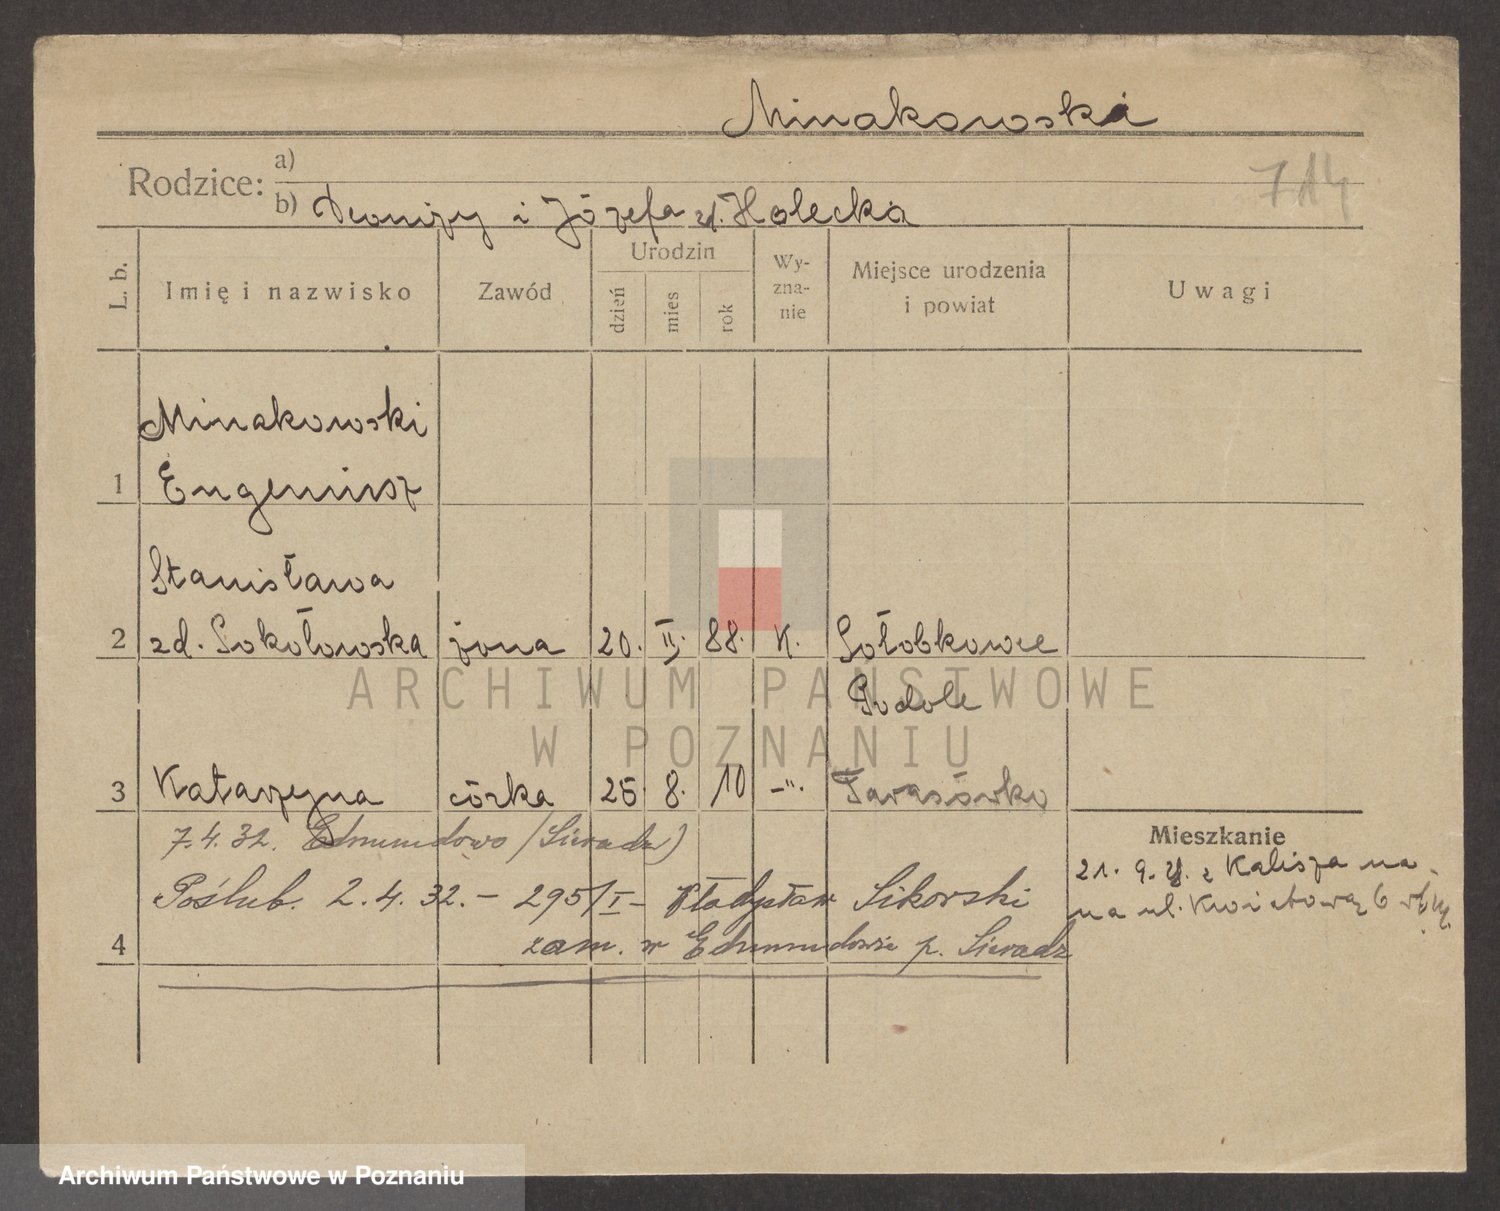 Minakowski
Rodzice: a)
714
b) Dionizy i Józefa zd. Holecka
L. b. Imię i nazwisko Zawód Urodzin dzień mies rok Wy-zna-nie Miejsce urodzenia i powiat Uwagi
Minakowski
1 Eugeniusz
Stanisława
2 zd. Sokołowska żona 20. II. 88. K. Sołobkowce
Podole
3 Katarzyna córka 25. 8. 10 -"- Tarasówka
7.4.32. Edmundowo (Sieradz)
Mieszkanie
21. 9. z Kalisza na
Poślub. 2.4.32. – 295/I – Władysław Sikorski
na ul. Kwiatową 6
4 zam. w Edmundowie p. Sieradz
ARCHIWUM PAŃSTWOWE
W POZNANIU
Archiwum Państwowe w Poznaniu